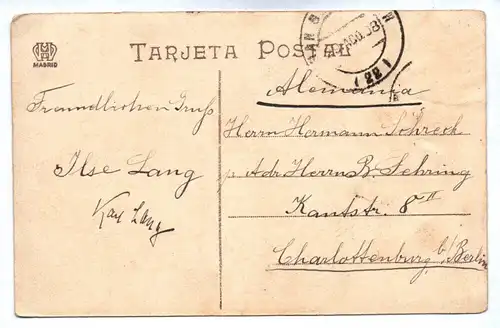 MADRID
TARJETA POSTAL
AGO.08
(22)
Alemania
Freundlichen Gruß
Ilse Lang
Kax Lang
Herrn Hermann Schreck
p. Adr. Herrn B. Fehring
Kantstr. 8 II
Charlottenburg b/Berlin